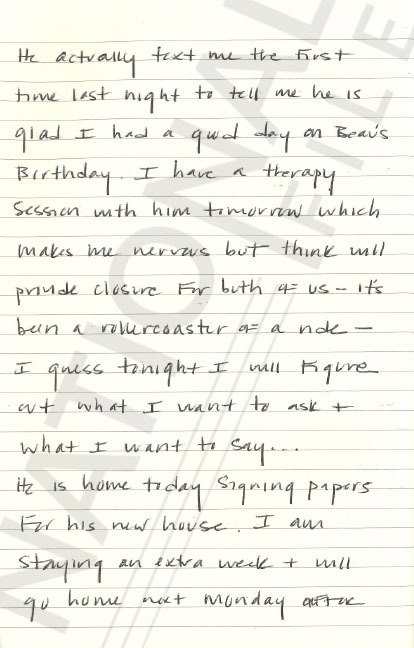 He actually text me the first
time last night to tell me he is
glad I had a good day on Beau's
Birthday. I have a therapy
session with him tomorrow which
makes me nervous but think will
provide closure For both of us - it's
been a rollercoaster of a ride -
I guess tonight I will Figure
out what I want to ask +
what I want to say...
He is home today signing papers
For his new house. I am
staying an extra week + will
go home next Monday after
NATIONAL FILE